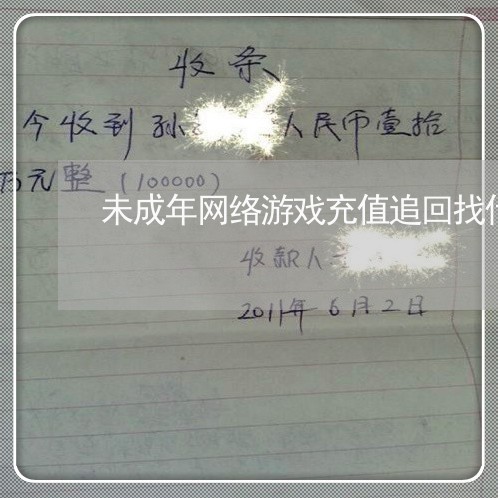 收条
今收到孙 人民币壹拾
万元整(100000)
未成年网络游戏充值追回找
收款人
2011年6月2日